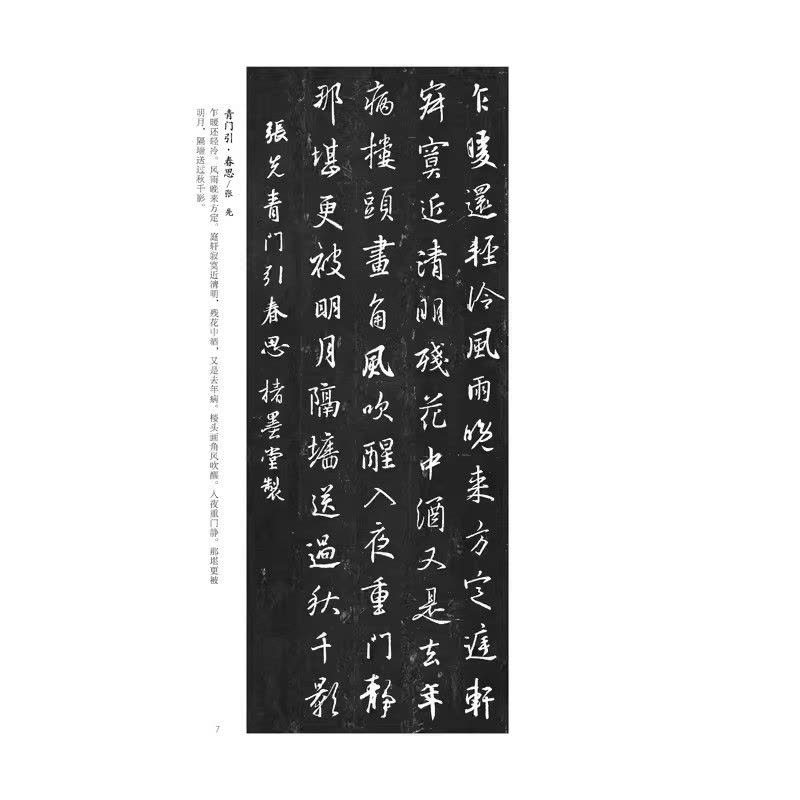 乍暖還輕冷風雨晚来方定庭軒
寂寞近清明殘花中酒又是去年
病樓頭畫角風吹醒入夜重门静
那堪更被明月隔墻送過秋千影
張先青门引春思 楮墨堂製
青门引·春思/张 先
乍暖还轻冷。风雨晚来方定。庭轩寂寞近清明，残花中酒，又是去年病。 楼头画角风吹醒。入夜重门静。那堪更被
明月，隔墙送过秋千影。
7